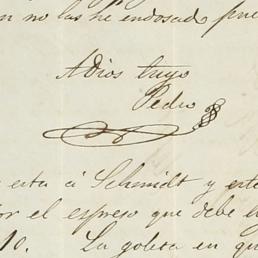 no las he endosado pue
Adios tuyo
Pedro
esta á Schmidt y est
or el espreso que debe
10. La goleta en qu